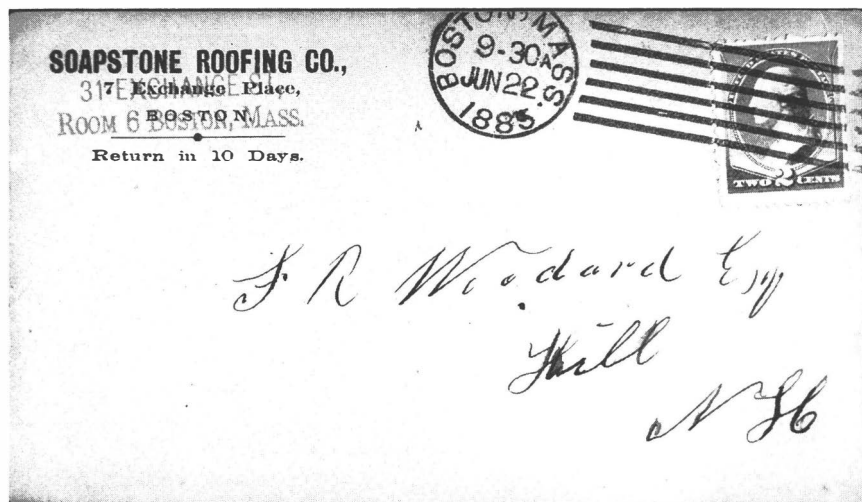 SOAPSTONE ROOFING CO.,
31 EXCHANGE ST,
7 Exchange Place,
BOSTON,
ROOM 6 BOSTON, MASS.
Return in 10 Days.
BOSTON, MASS.
9-30A
JUN 22
1885
TWO 2 CENTS
F R Woodard Esq
Hill
N H